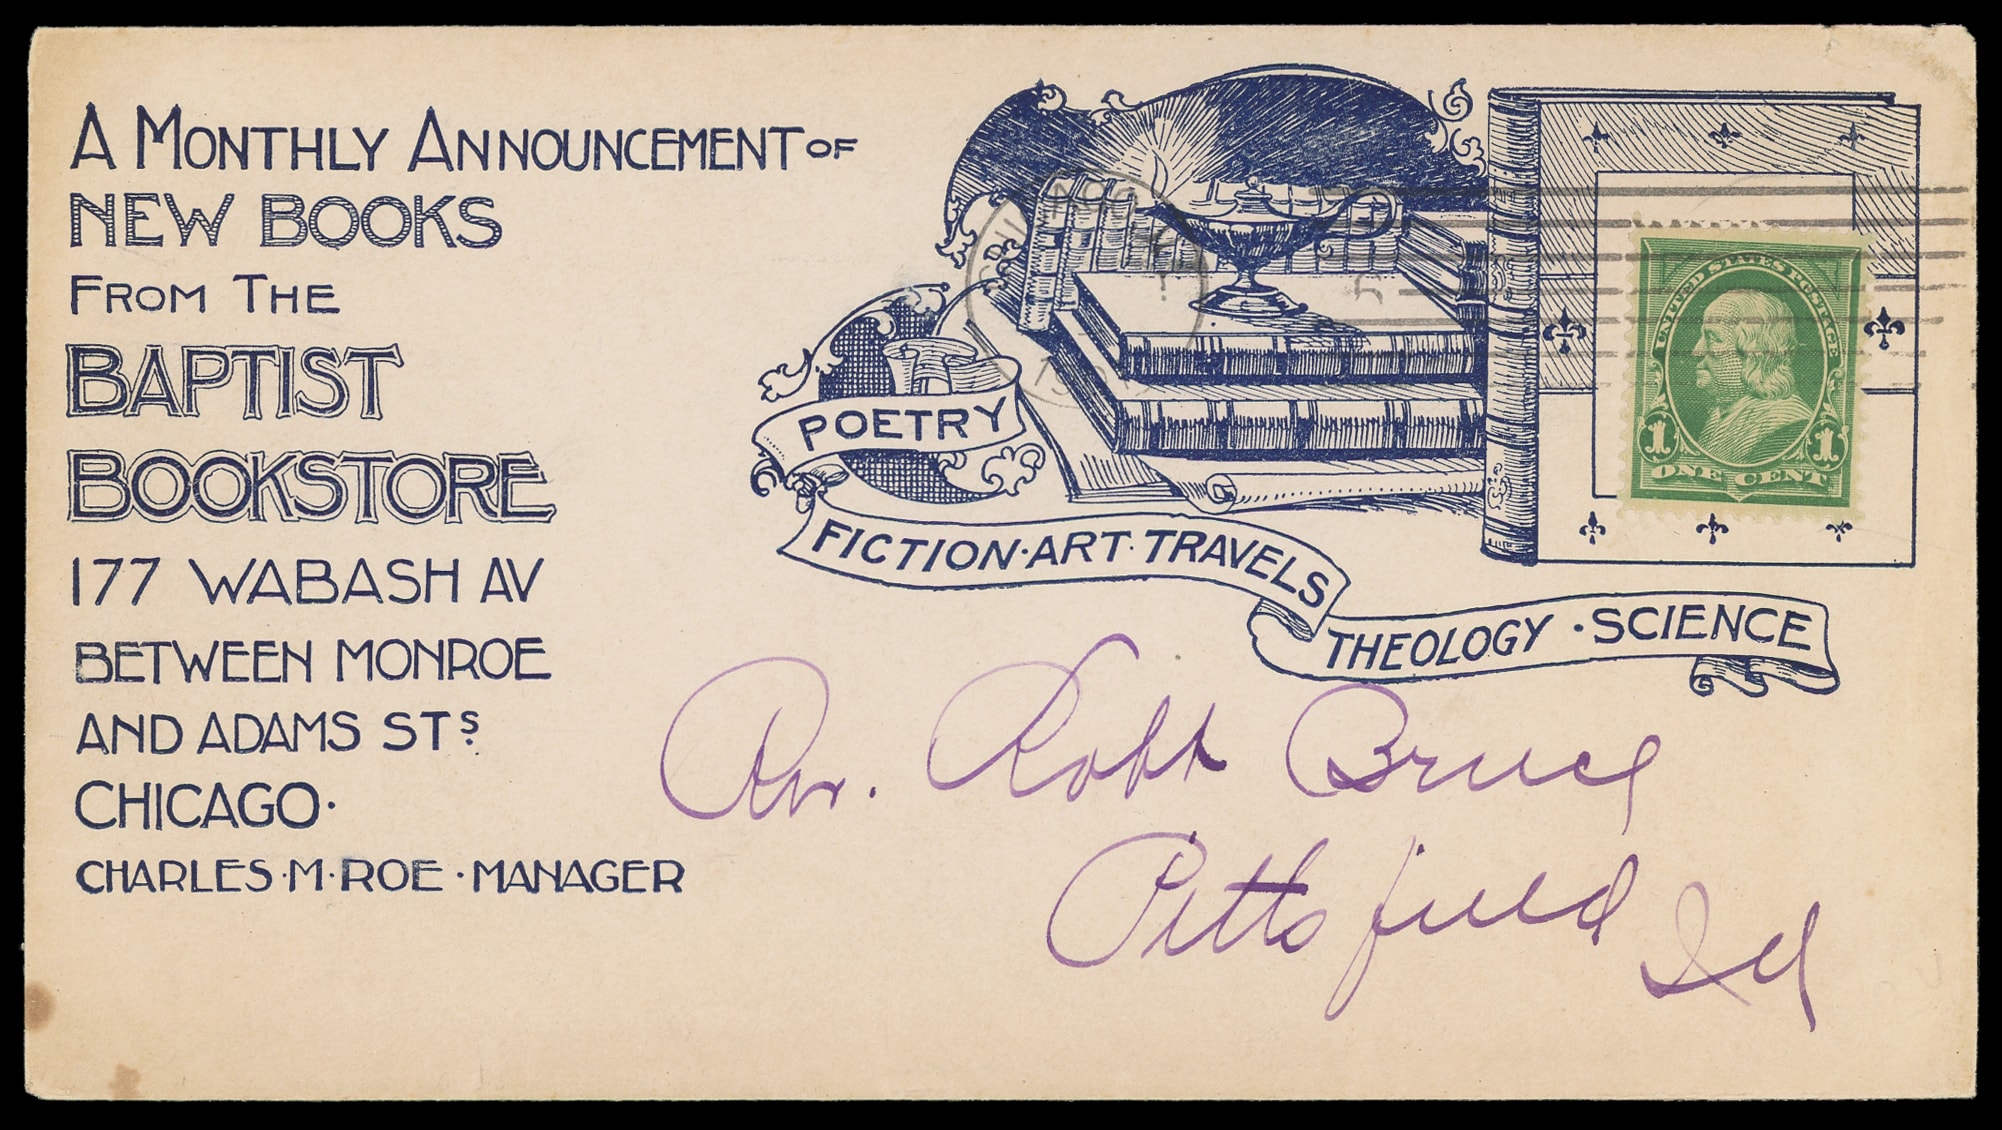 A MONTHLY ANNOUNCEMENT OF
NEW BOOKS
FROM THE
BAPTIST
BOOKSTORE
177 WABASH AV
BETWEEN MONROE
AND ADAMS STS.
CHICAGO.
CHARLES · M · ROE · MANAGER
POETRY
FICTION · ART · TRAVELS
THEOLOGY · SCIENCE
UNITED STATES POSTAGE
1 1
ONE CENT
Rev. Robt Bruce
Pittsfield Ill